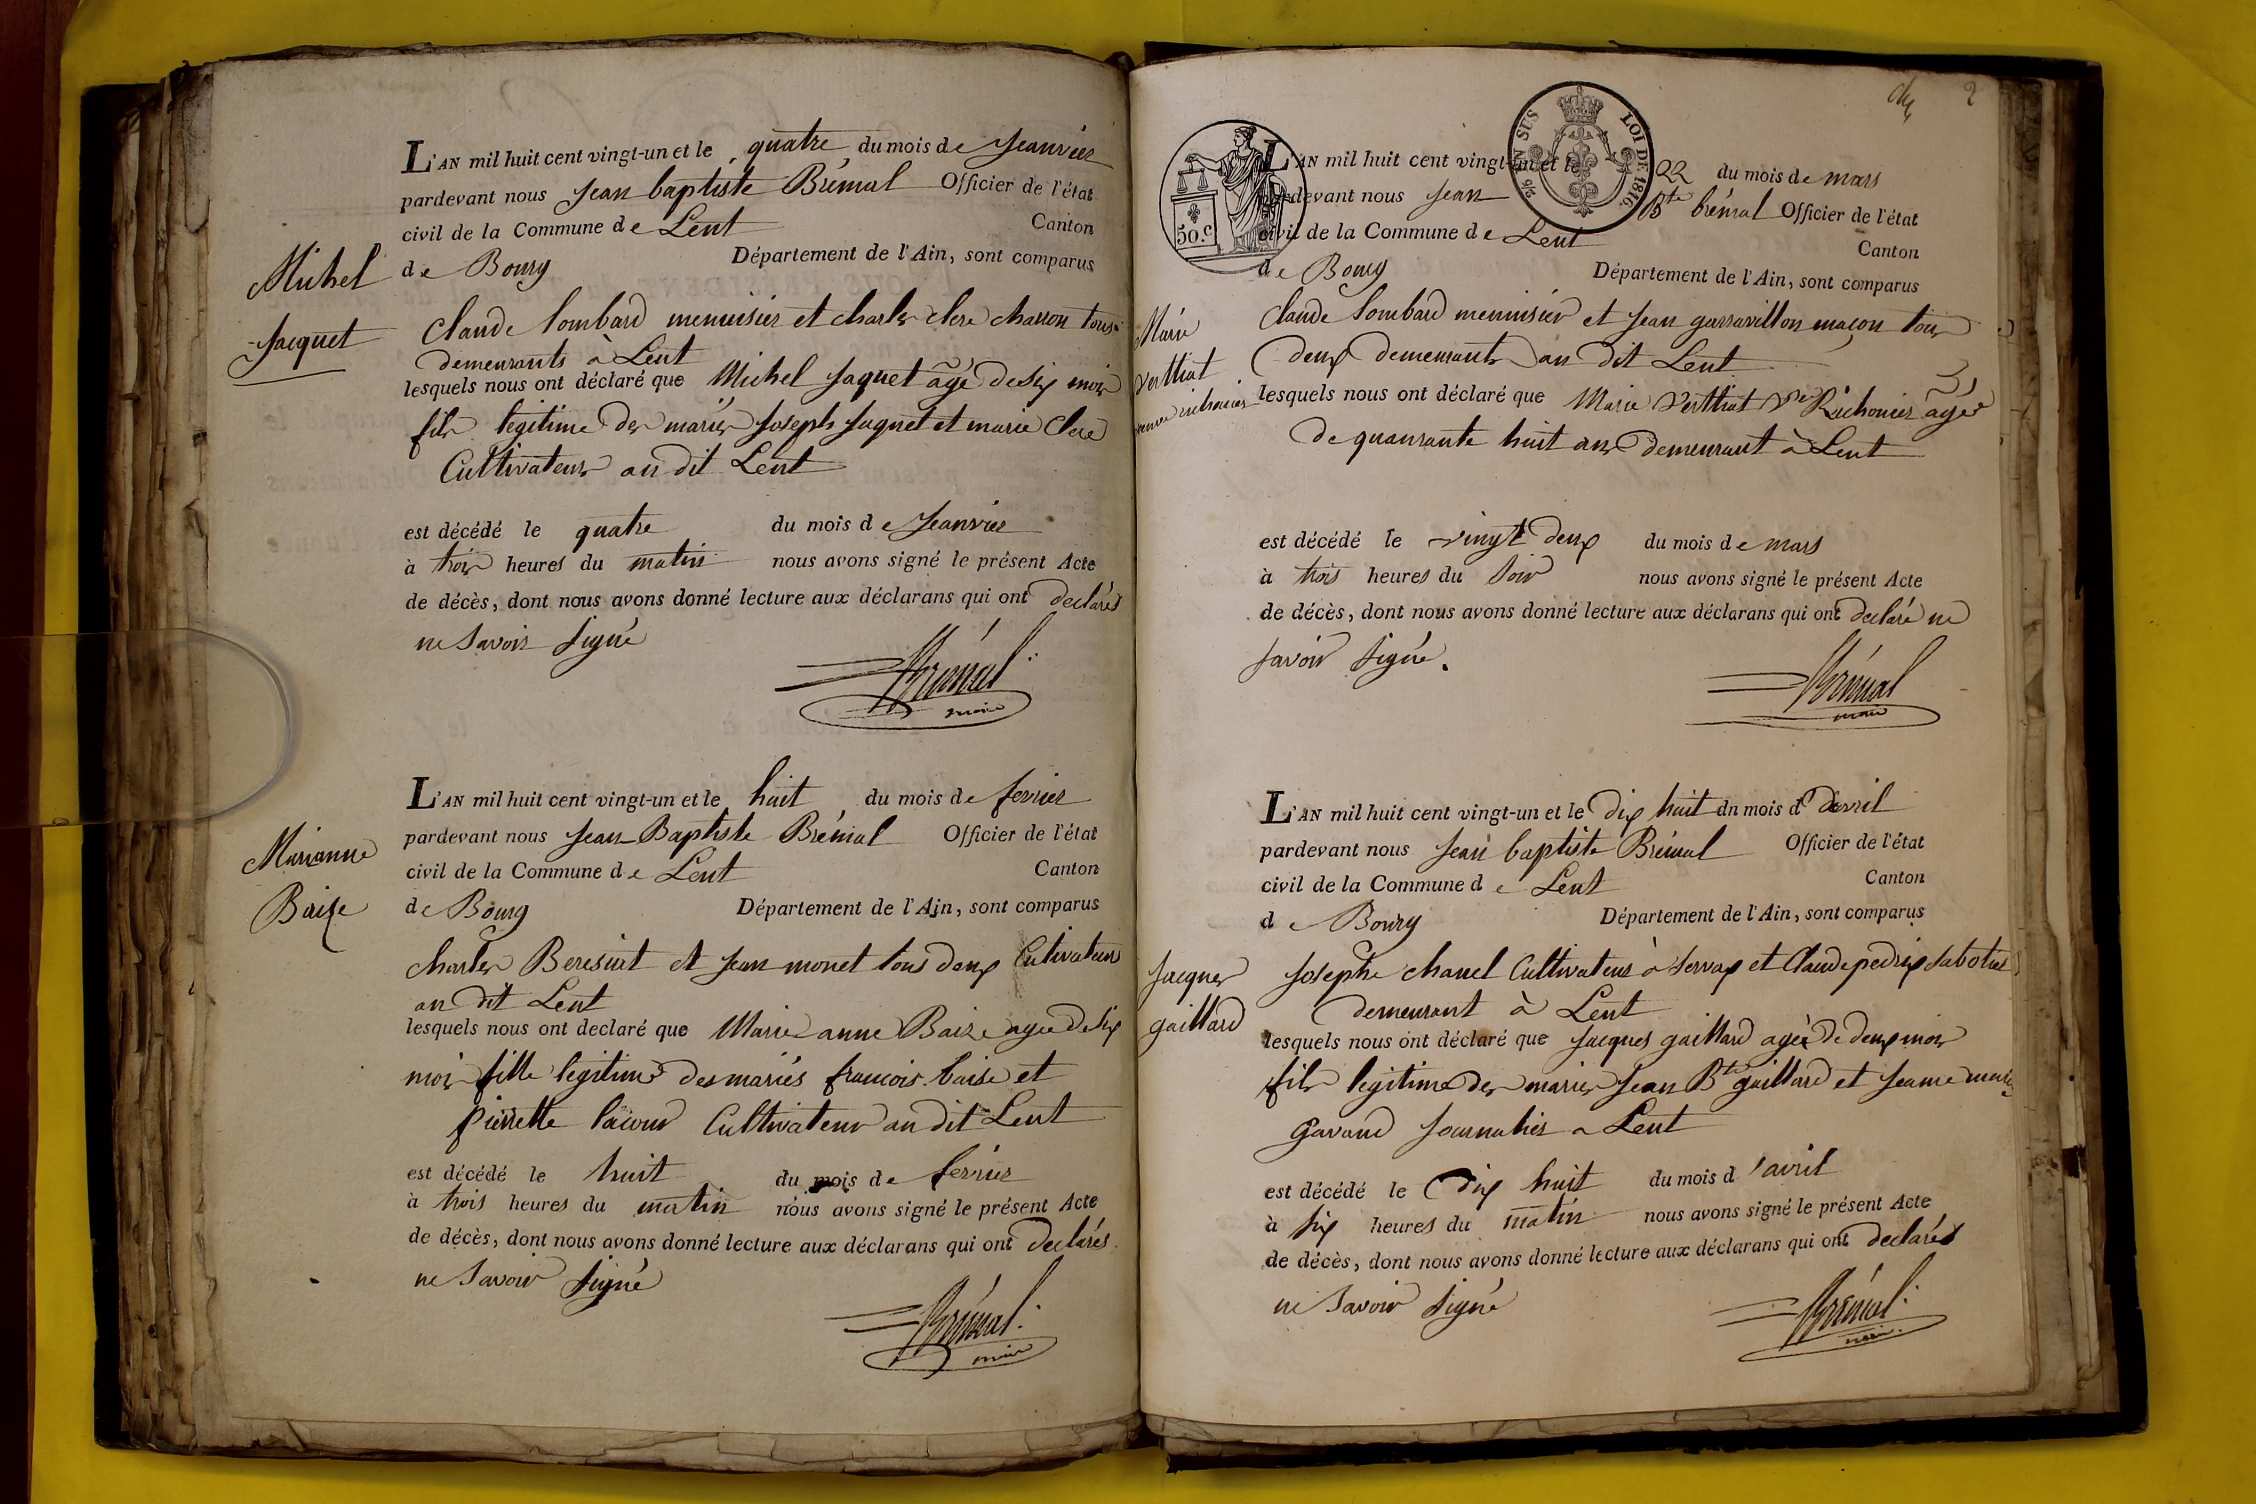 Michel
Jacquet
L'AN mil huit cent vingt-un et le quatre du mois de Jeanvier
pardevant nous Jean baptiste Brémal Officier de l'état
civil de la Commune de Lent Canton
de Bourg Département de l'Ain, sont comparus
Claude Lombard menuisier et Charles Clere charron tous
demeurants à Lent
lesquels nous ont déclaré que Michel Jaquet âgé de six mois
fils legitime des mariés Joseph Jaquet et marie Clere
Cultivateurs au dit Lent
est décédé le quatre du mois de Jeanvier
à trois heures du matin nous avons signé le présent Acte
de décès, dont nous avons donné lecture aux déclarans qui ont declarés
ne Savoir Signé
Brémal
maire
Marianne
Baize
L'AN mil huit cent vingt-un et le huit du mois de fevrier
pardevant nous Jean Baptiste Brémal Officier de l'état
civil de la Commune de Lent Canton
de Bourg Département de l'Ain, sont comparus
Charles Beresiat et Jean monet tous deux Cultivateurs
au dit Lent
lesquels nous ont declaré que Marie anne Baize agée de six
mois fille legitime des mariés francois baise et
pierrette lacour Cultivateur au dit Lent
est décédé le huit du mois de fevrier
à trois heures du matin nous avons signé le présent Acte
de décès, dont nous avons donné lecture aux déclarans qui ont declarés
ne Savoir Signé
Brémal
maire
2
50.c
EN SUS
LOI DE 1816.
Marie
Verthiat
veuve
L'AN mil huit cent vingt-un et le 22 du mois de mars
pardevant nous Jean Bte brémal Officier de l'état
civil de la Commune de Lent Canton
de Bourg Département de l'Ain, sont comparus
Claude Lombard menuisier et Jean garravillon maçon tous
deux demeurants au dit Lent
lesquels nous ont déclaré que Marie Verthiat Ve Richonier âgée
de quaurante huit ans demeurant à Lent
est décédé le vingt deux du mois de mars
à trois heures du Soir nous avons signé le présent Acte
de décès, dont nous avons donné lecture aux déclarans qui ont declaré ne
savoir signé.
Brémal
maire
Jacques
gaillard
L'AN mil huit cent vingt-un et le dix huit du mois d'avril
pardevant nous Jean baptiste Brémal Officier de l'état
civil de la Commune de Lent Canton
de Bourg Département de l'Ain, sont comparus
Josephe chanel Cultivateur à Servax et Claude pedrix Sabotier
demeurant à Lent
lesquels nous ont déclaré que Jacques gaillard agée de deux mois
fils legitime des mariés Jean Bte gaillard et Jeanne marie
Gavand Journalier a Lent
est décédé le dix huit du mois d'avril
à six heures du matin nous avons signé le présent Acte
de décès, dont nous avons donné lecture aux déclarans qui ont declarés
ne Savoir Signé
Brémal
maire